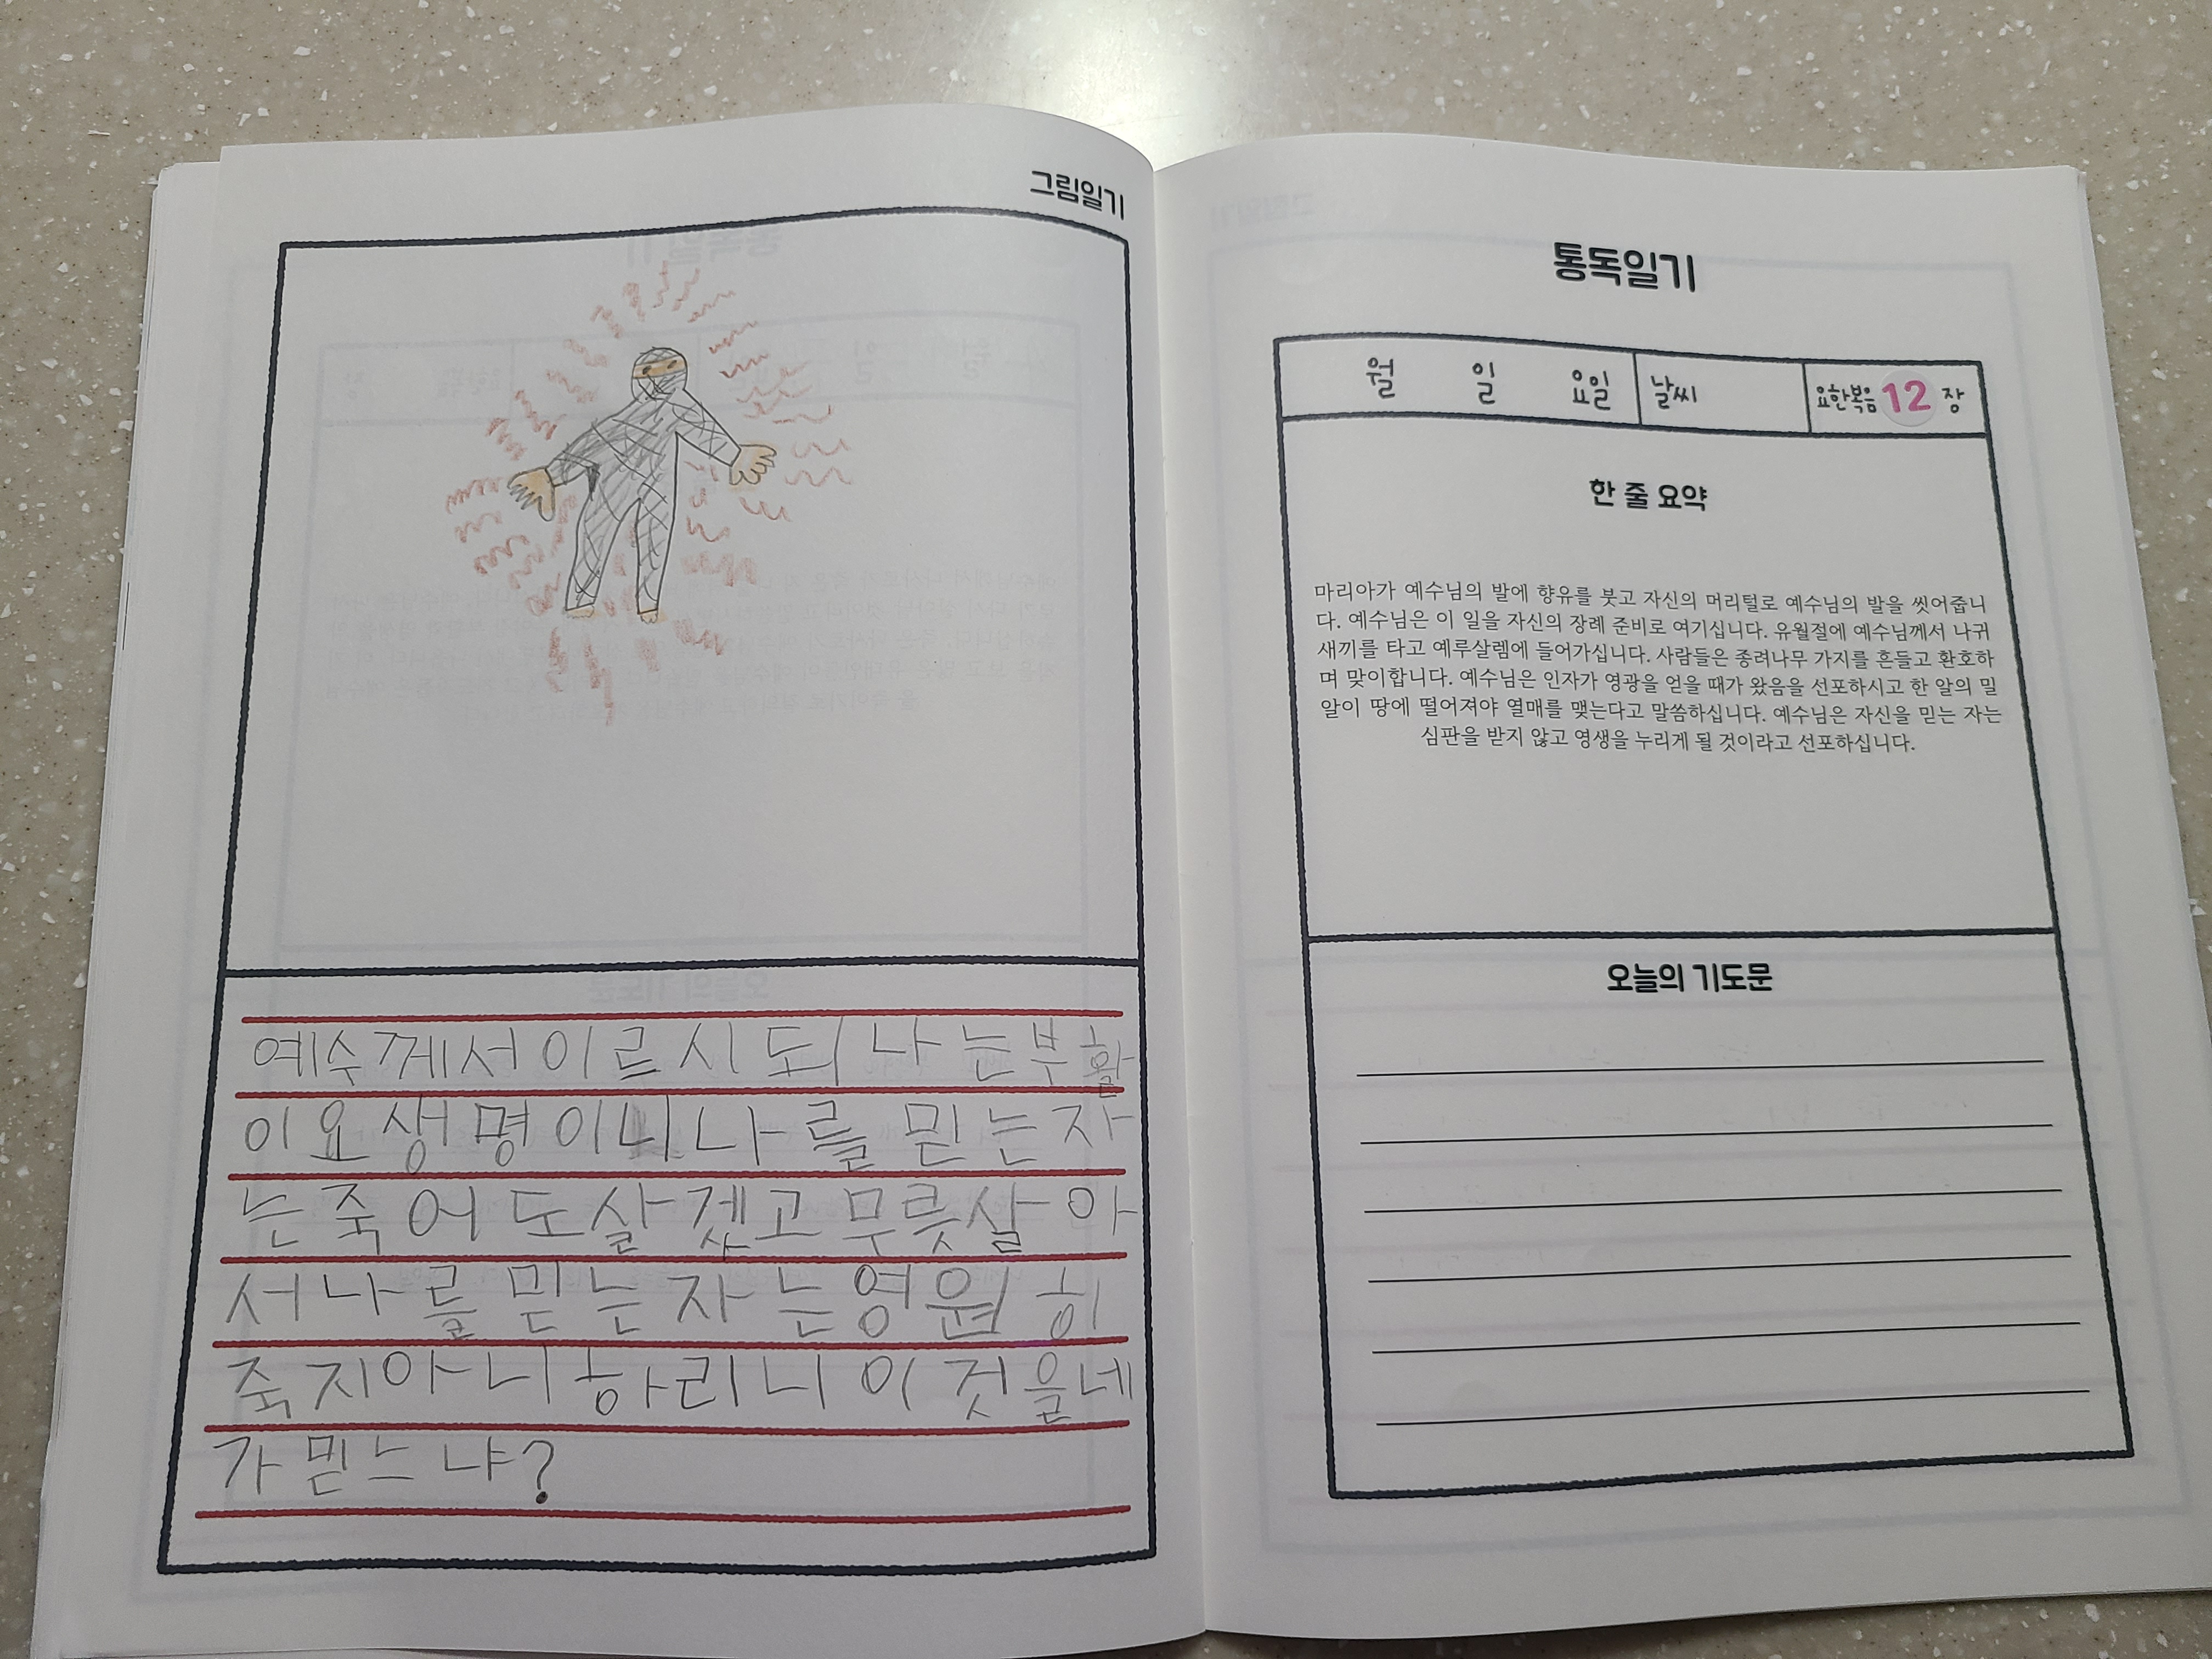 그림일기
예수께서이르시되나는부활
이요생명이니나를믿는자
는죽어도살겠고무릇살아
서나를믿는자는영원히
죽지아니하리니이것을네
가믿느냐?
통독일기
월 일 요일 날씨 요한복음 12 장
한 줄 요약
마리아가 예수님의 발에 향유를 붓고 자신의 머리털로 예수님의 발을 씻어줍니
다. 예수님은 이 일을 자신의 장례 준비로 여기십니다. 유월절에 예수님께서 나귀
새끼를 타고 예루살렘에 들어가십니다. 사람들은 종려나무 가지를 흔들고 환호하
며 맞이합니다. 예수님은 인자가 영광을 얻을 때가 왔음을 선포하시고 한 알의 밀
알이 땅에 떨어져야 열매를 맺는다고 말씀하십니다. 예수님은 자신을 믿는 자는
심판을 받지 않고 영생을 누리게 될 것이라고 선포하십니다.
오늘의 기도문